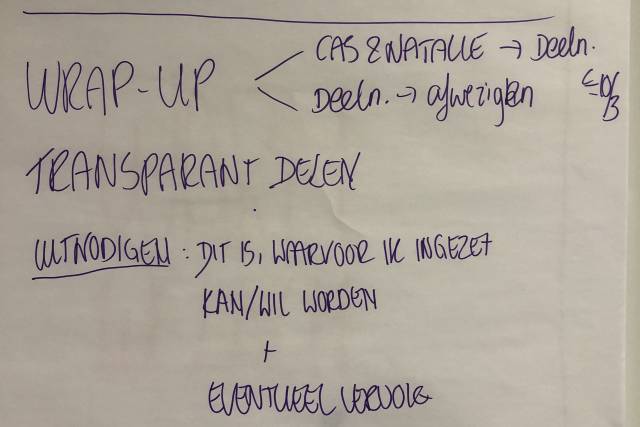 CAS & NATALIE → Deeln.
WRAP-UP
Deeln. → afwezigen
TRANSPARANT DELEN
UITNODIGEN: DIT IS, WAARVOOR IK INGEZET
KAN/WIL WORDEN
+
EVENTUEEL VERVOLG